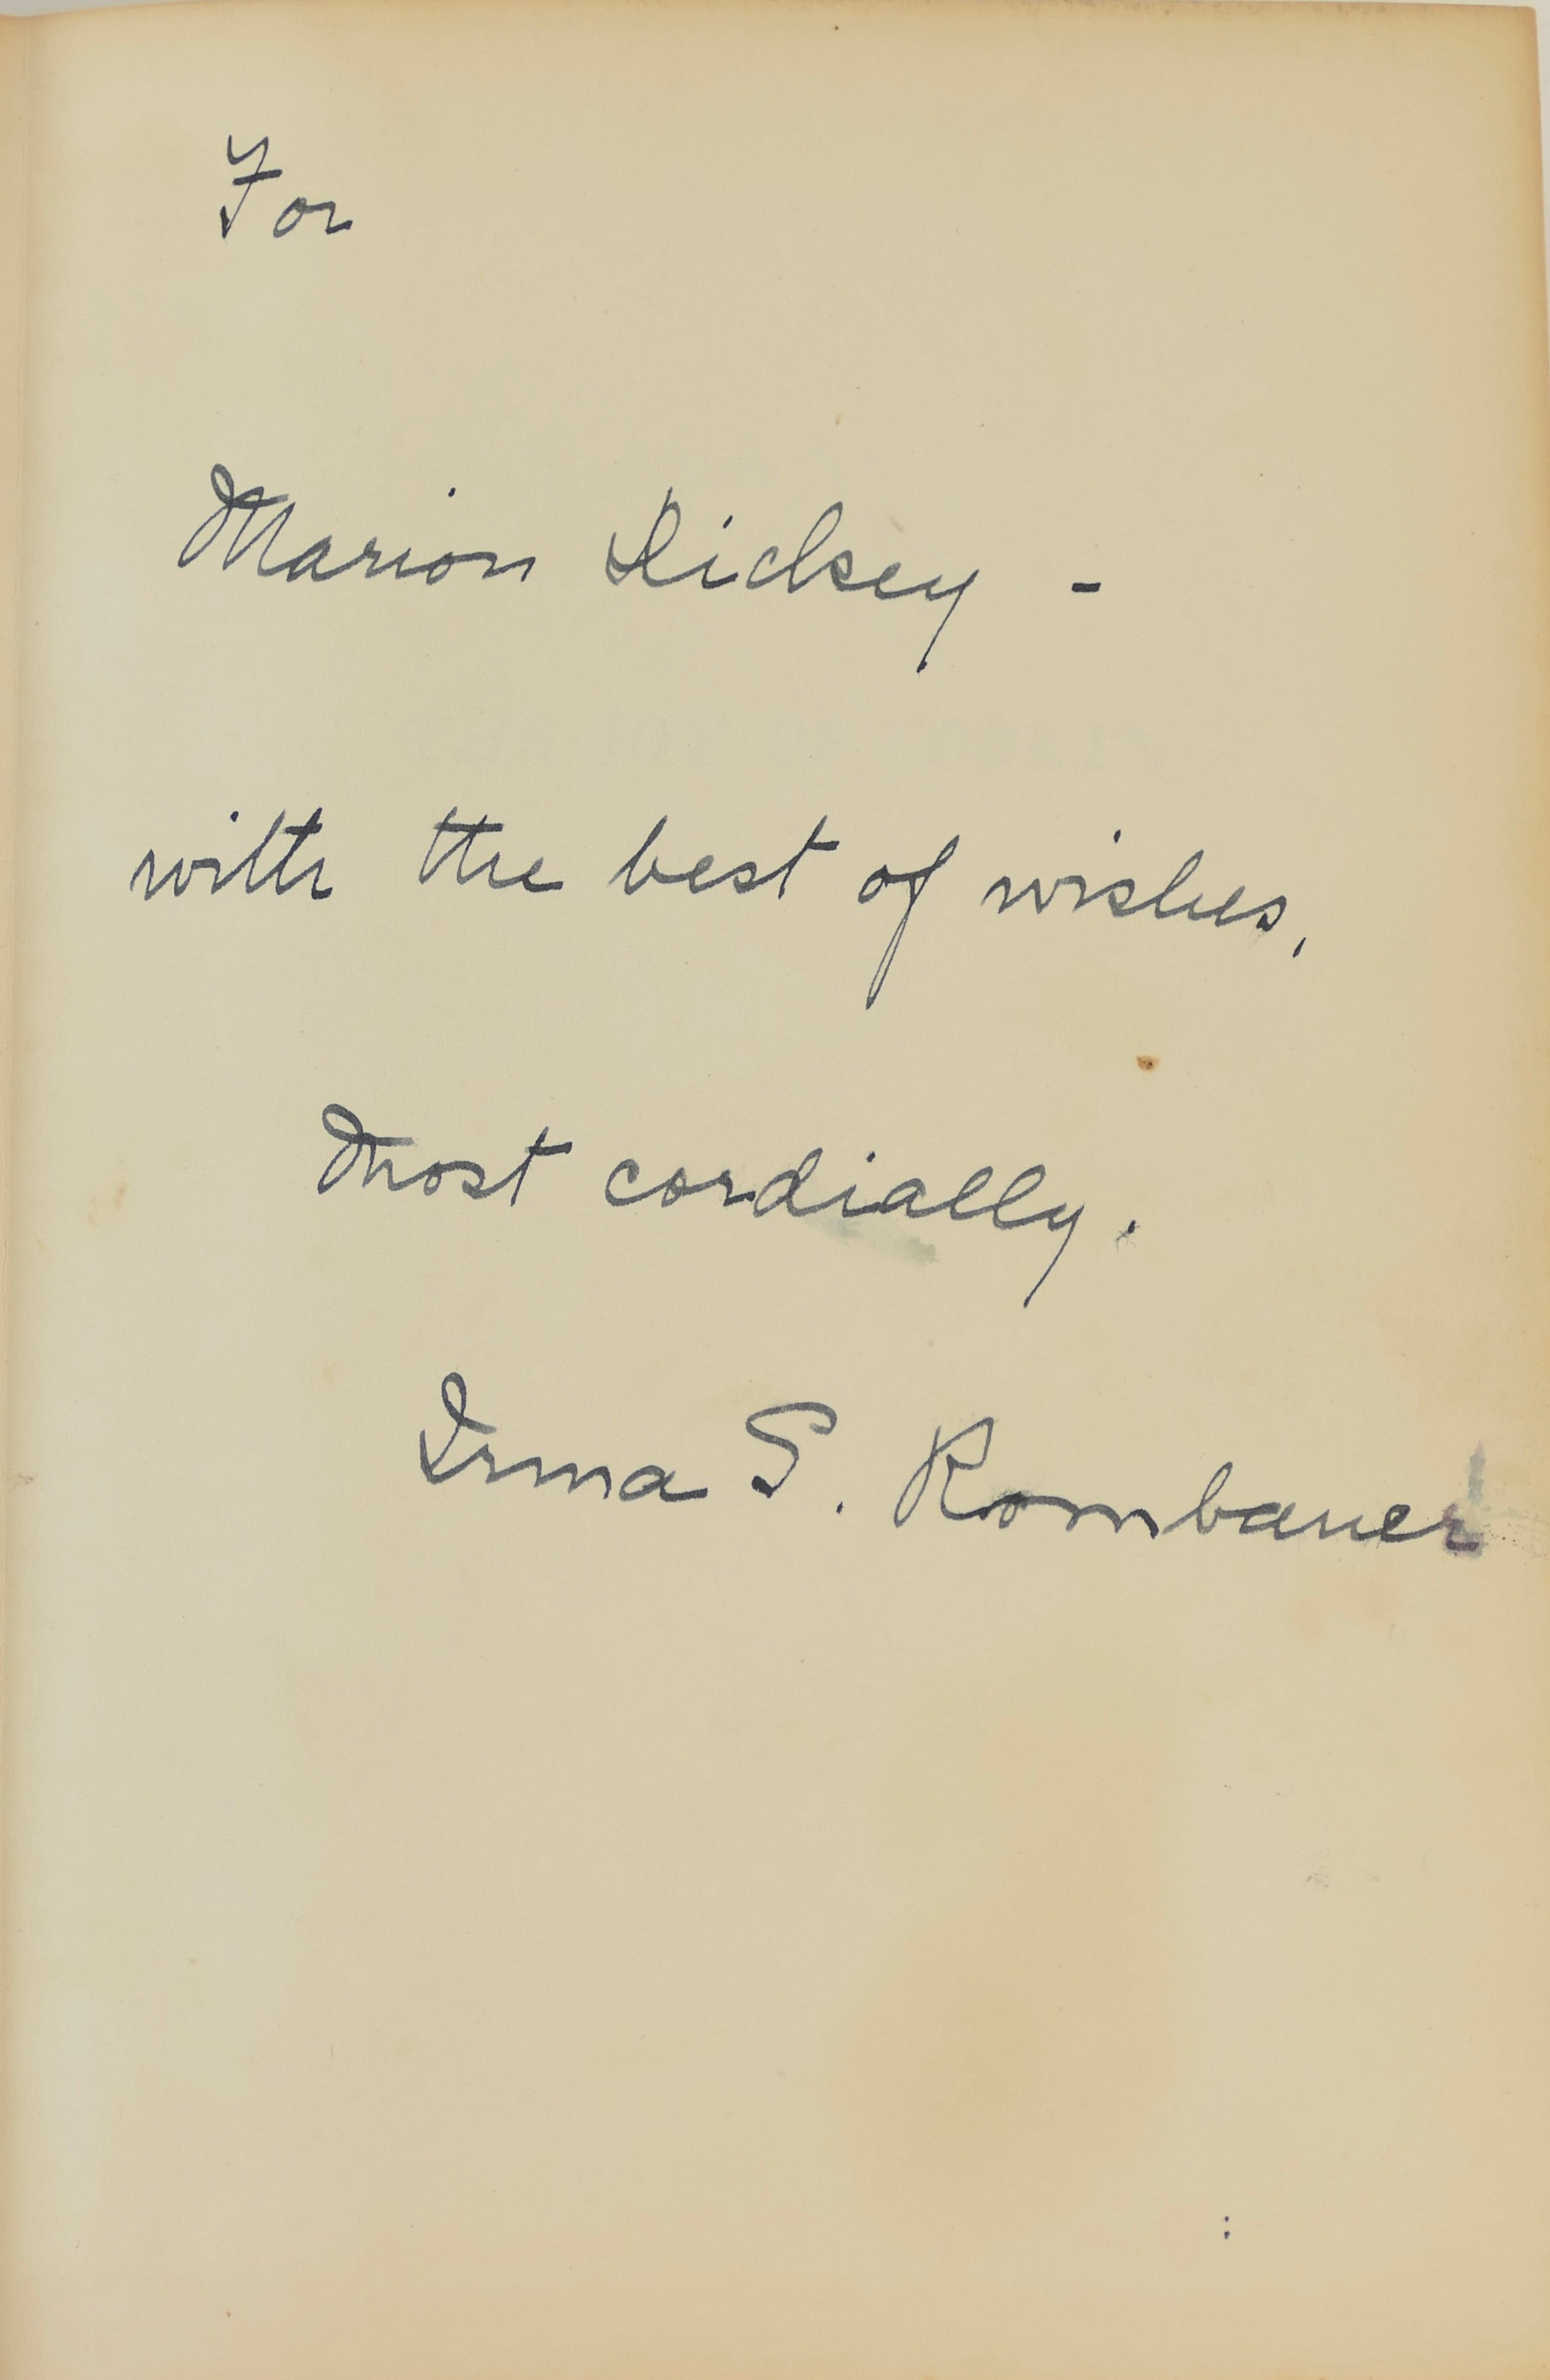 For
Marion Dicksey -
with the best of wishes,
Most cordially.
Irma S. Rombauer